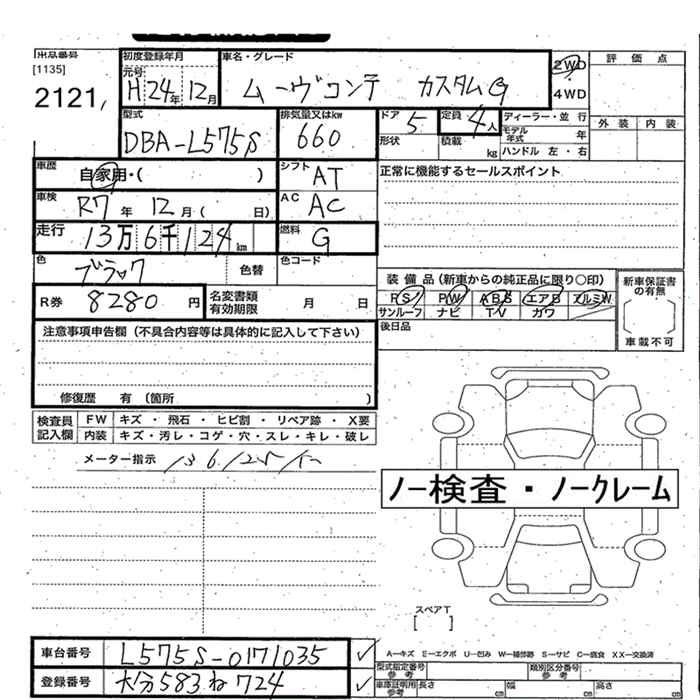 出品番号
[1135]
2121
初度登録年月
元号
H 24年 12月
車名・グレード
ムーヴコンテ カスタムG
2WD
4WD
評価点
外装 内装
型式
DBA-L575S
排気量又はkw
660
ドア 5
定員 4人
形状
積載 kg
ディーラー・並行
モデル年式 年
ハンドル 左・右
車歴
自家用・( )
シフト AT
正常に機能するセールスポイント
車検
R7年 12月( 日)
AC AC
走行
13万6千124km
燃料 G
色
ブラック
色替
色コード
R券 8280円
名変書類有効期限 月 日
装備品(新車からの純正品に限り○印)
PS PW ABS エアB アルミW
サンルーフ ナビ TV ガワ
後日品
新車保証書の有無
車載不可
注意事項申告欄(不具合内容等は具体的に記入して下さい)
修復歴 有(箇所 )
検査員記入欄
FW キズ・飛石・ヒビ割・リペア跡・X要
内装 キズ・汚レ・コゲ・穴・スレ・キレ・破レ
メーター指示
ノー検査・ノークレーム
スペアT
[ ]
車台番号 L575S-0171035
登録番号 大分583ね724
A−キズ E−エクボ U−凹み W−補修跡 S−サビ C−腐食 XX−交換済
型式指定番号
参考
類別区分番号
参考
車庫証明用
参考
長さ cm 幅 cm 高さ cm